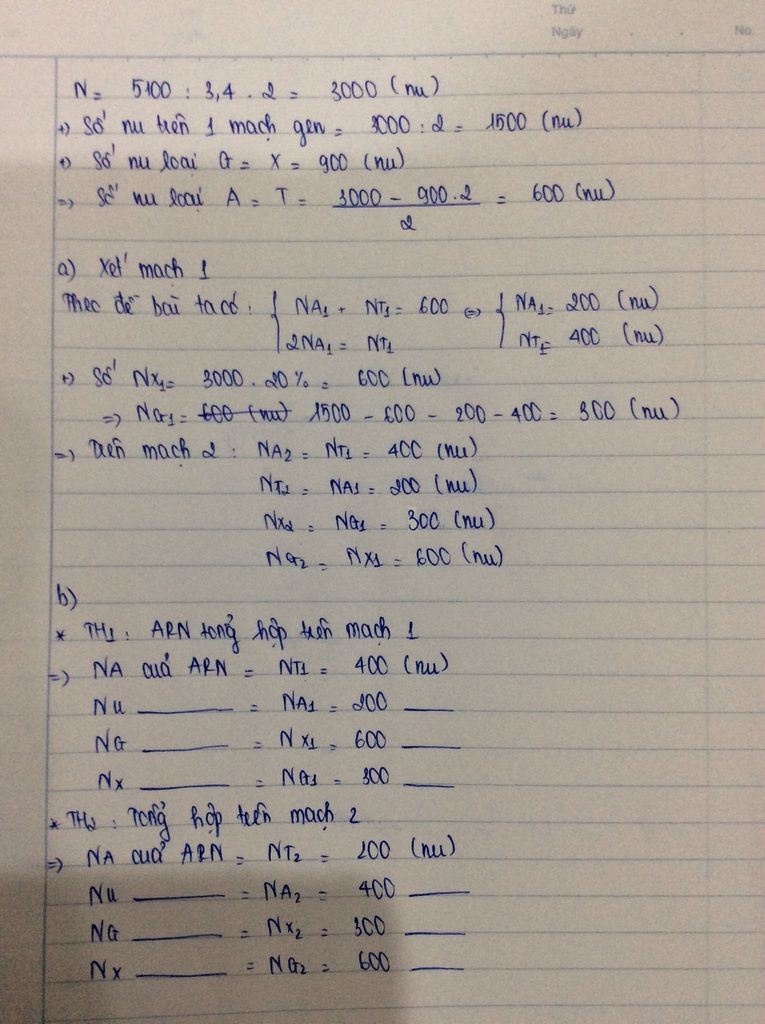 Thứ
Ngày
No.
N = 5100 : 3,4 . 2 = 3000 (nu)
+) Số nu trên 1 mạch gen = 3000 : 2 = 1500 (nu)
+) Số nu loại G = X = 900 (nu)
=> Số nu loại A = T = (3000 - 900.2) / 2 = 600 (nu)
a) Xét mạch 1
Theo đề bài ta có : { NA1 + NT1 = 600 <=> { NA1 = 200 (nu)
2NA1 = NT1 NT1 = 400 (nu)
+) Số NX1 = 3000 . 20% = 600 (nu)
=> NG1 = 600 (nu) 1500 - 600 - 200 - 400 = 300 (nu)
=> Trên mạch 2 : NA2 = NT1 = 400 (nu)
NT2 = NA1 = 200 (nu)
NX2 = NG1 = 300 (nu)
NG2 = NX1 = 600 (nu)
b)
* TH1 : ARN tổng hợp trên mạch 1
=> NA của ARN = NT1 = 400 (nu)
Nu ——— = NA1 = 200 ——
NG ——— = NX1 = 600 ——
NX ——— = NG1 = 300 ——
* TH2 : Tổng hợp trên mạch 2
=> NA của ARN = NT2 = 200 (nu)
Nu ——— = NA2 = 400 ——
NG ——— = NX2 = 300 ——
NX ——— = NG2 = 600 ——